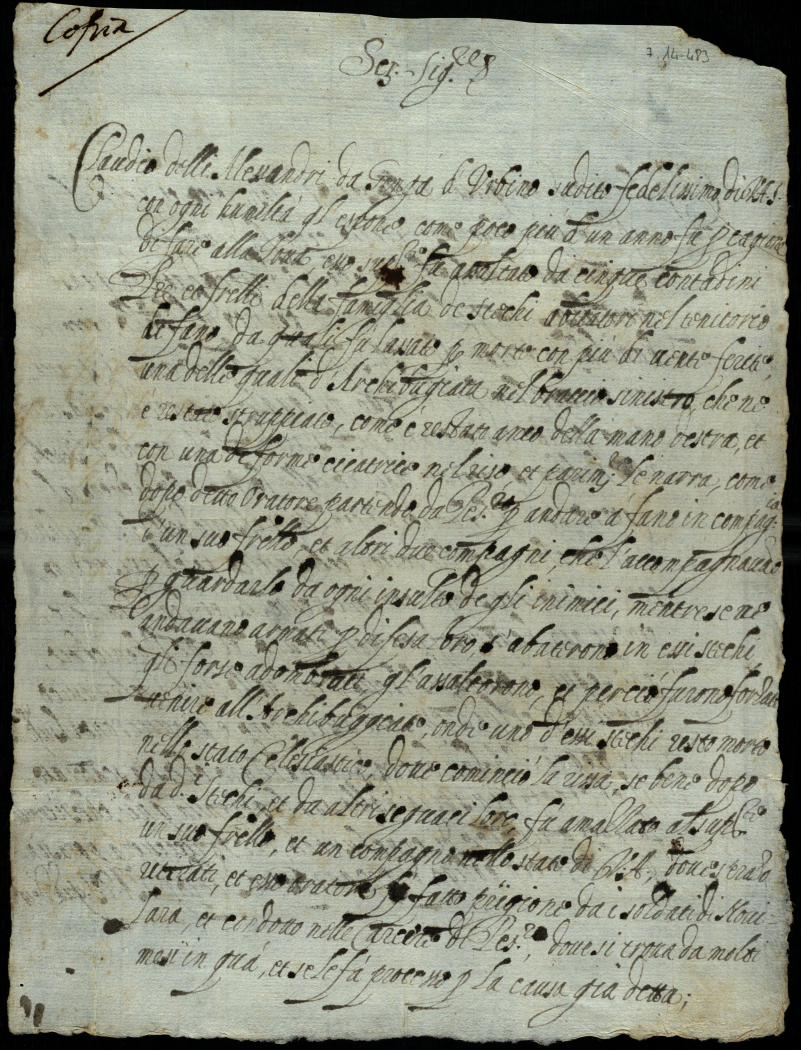 Copia
7. 14-483
Ser. Sig.re
Claudio delli Alexandri da d'Urbino sudito fedelissimo di
con ogni humiltà gl'espone, come poco più d'un anno fu p cagione
de fare alla fu assaltato da cinque contadini
et frelli della famiglia de Stechi nel teritorio
di fano da quali fu lassato p morto con più di vente ferite,
una delle quali d'Archibugiata nel braccio sinistro, che ne
è restato stroppiato, come è restati anco della mano destra, et
con una deforme cicatrice nel viso, et parim.te se narra, come
dopo detto Oratore partendo da Pes.ro p andare à fano in compag.ia
d'un suo frello, et altri duo compagni, che l'accompagnavano
p guardarlo da ogni insulto de gli inimici, mentre se ne
andavano armati p difesa loro, s'abaterono in essi stechi
gl'assaltorono, et perciò furono forzati
venire all'Archibuggiate, onde uno d'essi stechi restò morto
nello stato Eclesiastico, dove cominciò la rissa, se bene dopo
da d.i Stechi, et da altri seguaci loro, fu amallato
un suo frello, et un compagno nello stato di dove s'erano
ritirati, et esso oratore fu fatto prigione da i soldati di Novi-
lara, et condotto nelle Carcere di Pes.ro, dove si trova da molti
mesi in quà, et se le fà processo p la causa già detta;